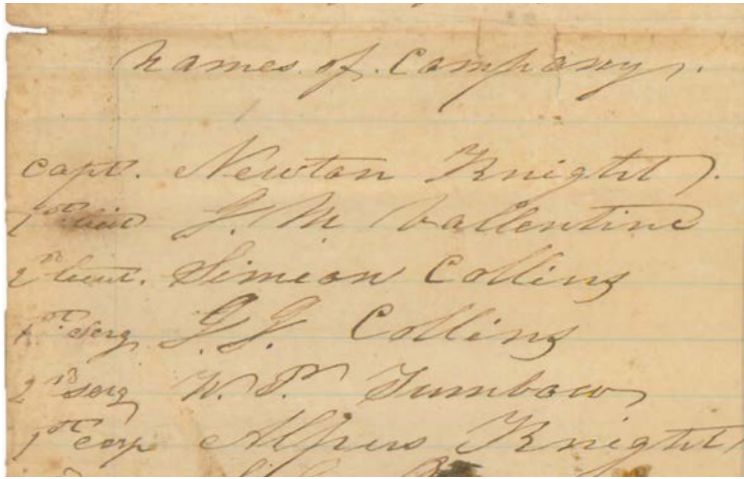 names of Company.
capt. Newton Knight.
1st lieut J. M Vallentine
2nd lieut. Simeon Collins
1st Serg J. J. Collins
2nd serg W. P.
1st corp Alpeus Knight